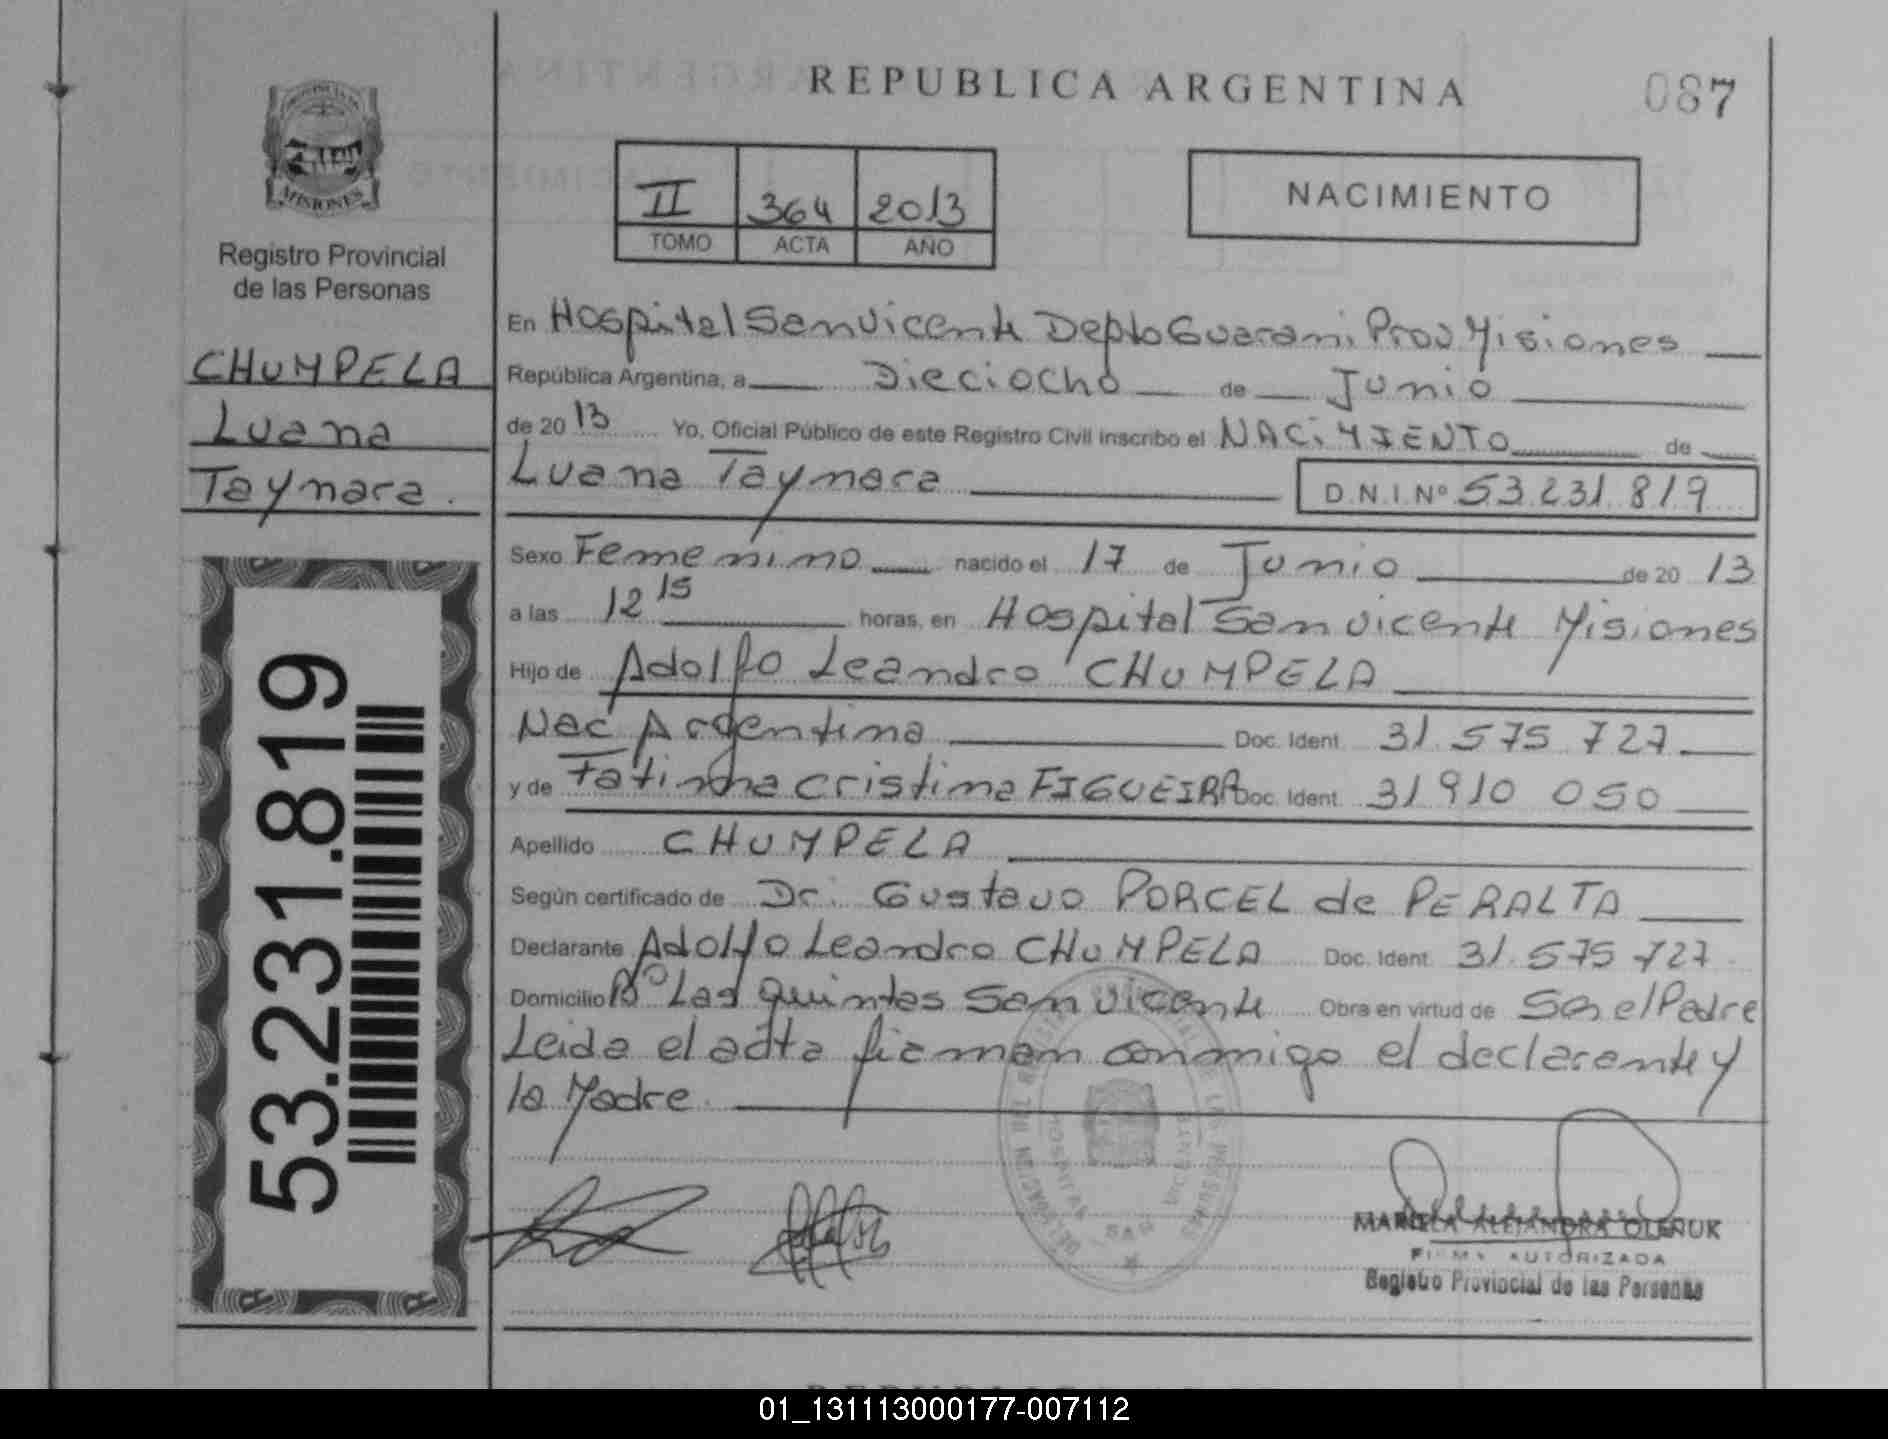 REPUBLICA ARGENTINA
087
PROVINCIA DE
MISIONES
Registro Provincial
de las Personas
CHUMPELA
Luana
Taynara.
53.231.819
II 364 2013
TOMO ACTA AÑO
NACIMIENTO
En Hospital San Vicente Depto Guarani Prov Misiones
República Argentina, a Dieciocho de Junio
de 2013 Yo, Oficial Público de este Registro Civil inscribo el NACIMIENTO de
Luana Taynara D.N.I.Nº 53.231.819
Sexo Femenino nacido el 17 de Junio de 20 13
a las 12 15 horas, en Hospital San Vicente Misiones
Hijo de Adolfo Leandro CHUMPELA
Nac Argentina Doc. Ident. 31.575.727
y de Fatinha Cristina FIGUEIRA Doc. Ident. 31 910 050
Apellido CHUMPELA
Según certificado de Dr. Gustavo PORCEL de PERALTA
Declarante Adolfo Leandro CHUMPELA Doc. Ident. 31.575.727
Domicilio Bº Las Quintas San Vicente Obra en virtud de Ser el Padre
Leida el acta firman conmigo el declarante y
la Madre.
MARIELA ALEJANDRA OLENUK
FIRMA AUTORIZADA
Registro Provincial de las Personas
01_131113000177-007112